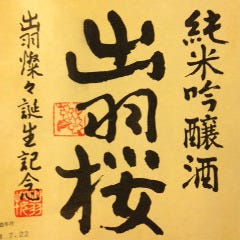 純米吟醸酒
出羽桜
出羽燦々誕生記念
7.22